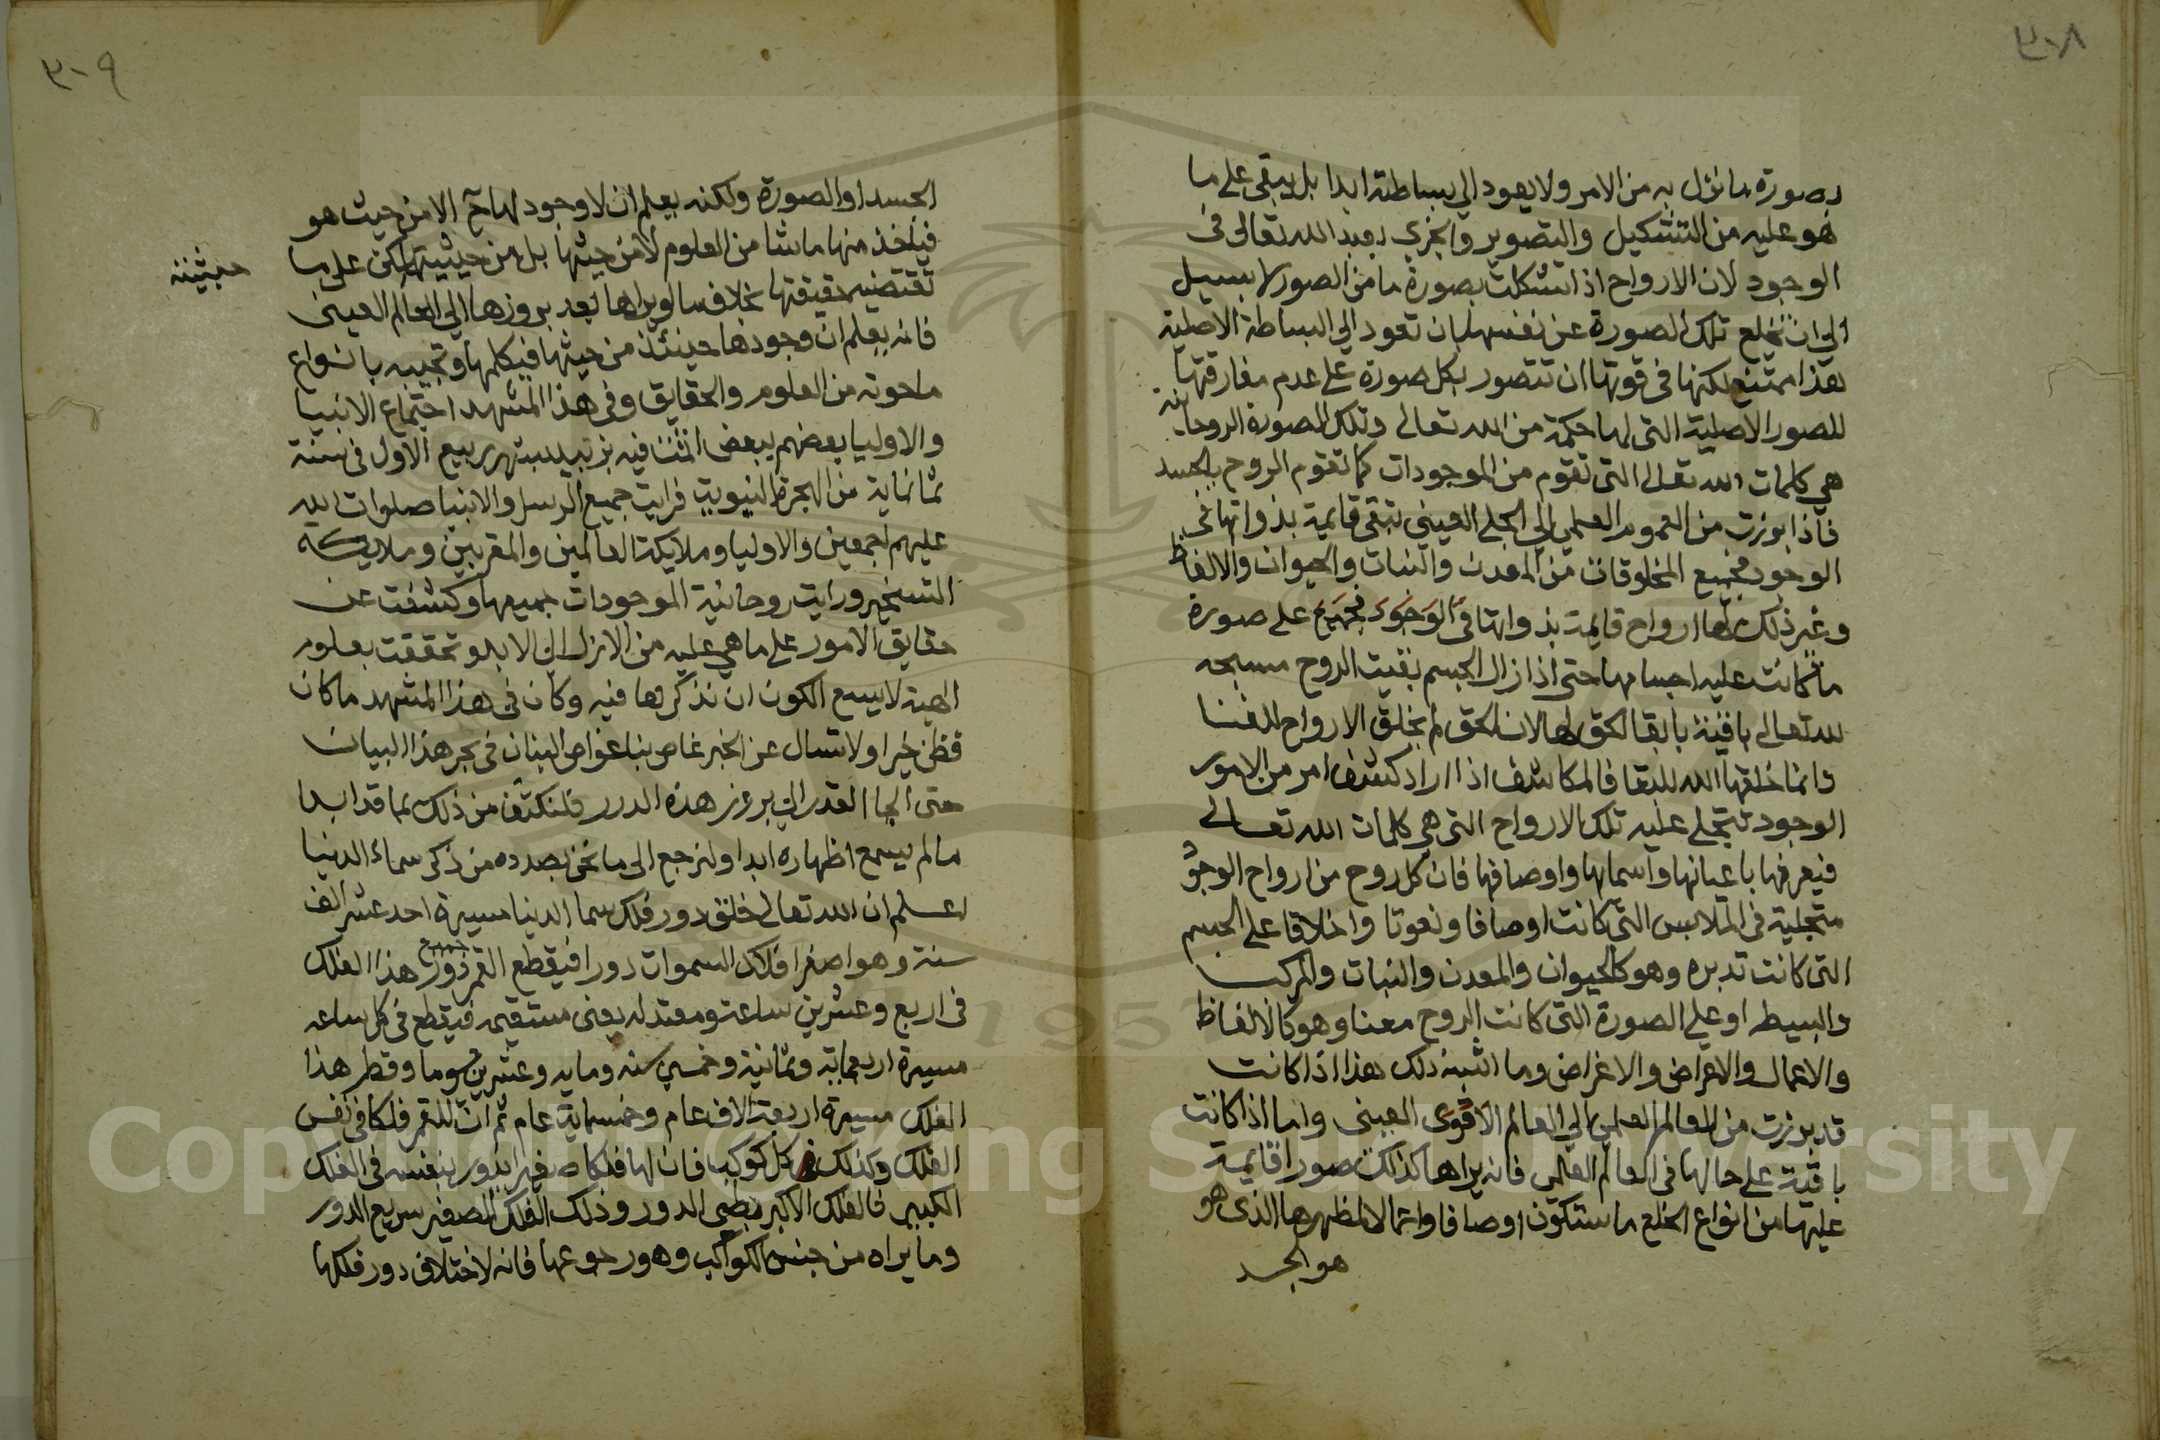 ٣٠٨
بصورة ما نزل به من الامر ولا يعود الي بساطته ابدا بل يبقى على ما
هو عليه من التشكيل والتصوير والجزي بعبد الله تعالى في
الوجود لان الارواح اذا تشكلت بصورة ما من الصور لا سبيل
الي ان تخلع تلك الصورة عن نفسها بان تعود الي البساطة الاصلية
هذا ممتنع لكنها في قوتها ان تتصور بكل صورة على عدم مفارقتها
للصور الاصلية التي لها حكمة من الله تعالى وتلك الصورة الروحانية
هي كلمات الله تعالى التي تقوم من الموجودات كما تقوم الروح بالجسد
فاذا برزت من العموم العلمي الي الجلي العيني تبقي قايمة بذواتها في
الوجود فجميع المخلوقات من المعدن والنبات والحيوان والالفاظ
وغير ذلك لها ارواح قايمة بذواتها في الوجود فجميع على صورة
ما كانت عليه اجسامها حتى اذا زال الجسم بقيت الروح مسبحه
لله تعالى باقية بابقا الحق لها لان الحق لم يخلق الارواح للفنا
وانما خلقها الله للبقا فالمكاشف اذا اراد كشف امر من الامور
الوجود تتجلى عليه تلك الارواح التي هي كلمات الله تعالى
فيعرفها باعيانها واسمايها واوصافها فان كل روح من ارواح الوجود
متجلية في الملابس التي كانت اوصافا ونعوتا واخلاقا على الجسم
التي كانت تدبره وهو كالحيوان والمعدن والنبات والمركب
والبسيط او على الصورة التي كانت الروح معنا وهو كالالفاظ
والاعمال والاعراض والاغراض وما اشبه ذلك هذا اذا كانت
قد برزت من العالم العلمي الي العالم الاقوى العيني واما اذا كانت
باقية على حالها في العالم العلمي فانه يراها كذلك صورا قايمة
عليها من انواع الخلع ما ستكون اوصافا واعمالا لمظهرها الذي هو
هو الجسد
٣٠٩
الجسد او الصورة ولكنه يعلم ان لا وجود لها ح الا من حيث هو
فياخذ منها ما شا من العلوم لا من حيثها بل من حيثيته لكن على ما
حيثيته
تقتضيه حقيقتها بخلاف ما لو يراها بعد بروزها الي العالم العيني
فانه يعلم ان وجودها حينئذ من حيثها فيكلمها وتجيبه بانواع
ما حوته من العلوم والحقايق وفي هذا المشهد اجتماع الانبيا
والاوليا بعضهم ببعض اقمت فيه بزبيد بشهر ربيع الاول في سنة
ثمانماية من الهجرة النبوية فرايت جميع الرسل والانبيا صلوات الله
عليهم اجمعين والاوليا وملايكة العالمين والمقربين وملايكة
التسخير ورايت روحانية الموجودات جميعها وكشفت عن
حقايق الامور على ما هي عليه من الازل الي الابد وتحققت بعلوم
الهية لا يسع الكون ان نذكرها فيه وكان في هذا المشهد ما كان
فظن خيرا ولا تسال عن الخبر غاص بنا غواص البنان في بحر هذا البيان
حتى الجا القدر الي بروز هذه الدرر فلنكتف من ذلك بما قد ابدا
ما لم يسمع اظهاره ابدا ولنرجع الى ما نحن بصدده من ذكر سماء الدنيا
اعلم ان الله تعالى خلق دور فلك سما الدنيا مسيرة احد عشر الف
سنة وهو اصغر افلاك السموات دورا فيقطع القمر دور جميع هذا الفلك
في اربع وعشرين ساعة ومعتدله يعني مستقيمه فيقطع في كل ساعه
مسيرة اربعماية وثمانية وخمسين سنه ومايه وعشرين يوما وقطر هذا
الفلك مسيرة اربعة الاف عام وخمسماية عام ثم ان للقمر فلكا في نفس
الفلك وكذلك كل كوكب فان لها فلكا صغيرا يدور بنفسه في الفلك
الكبير فالفلك الاكبر بطي الدور وذلك الفلك الصغير سريع الدور
وما يراه من خنس الكواكب وهو رجوعها فانه لاختلاف دور فلكها